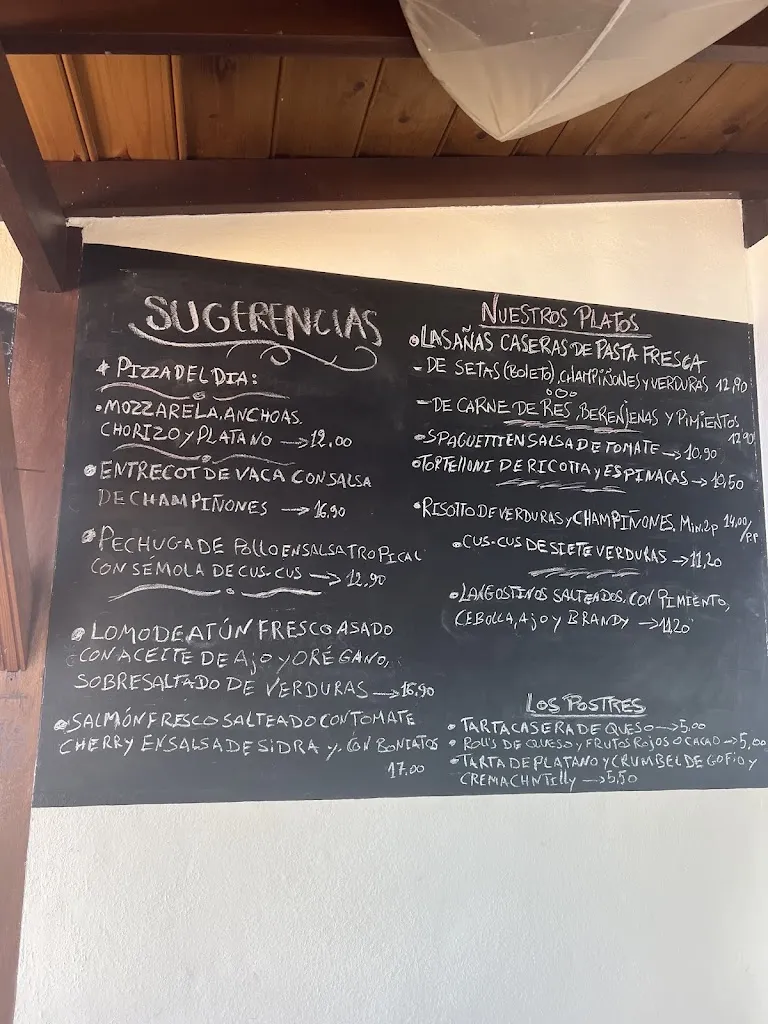 SUGERENCIAS
* PIZZA DEL DIA:
• MOZZARELA, ANCHOAS,
CHORIZO y PLATANO → 12,00
• ENTRECOT DE VACA CON SALSA
DE CHAMPIÑONES → 16,90
• PECHUGA DE POLLO EN SALSA TROPICAL
CON SEMOLA DE CUS-CUS → 12,90
• LOMO DE ATÚN FRESCO ASADO
CON ACEITE DE AJO y ORÉGANO,
SOBRE SALTADO DE VERDURAS → 16,90
• SALMÓN FRESCO SALTEADO CON TOMATE
CHERRY EN SALSA DE SIDRA y, CON BONIATOS
17.00
NUESTROS PLATOS
• LASAÑAS CASERAS DE PASTA FRESCA
- DE SETAS (BOLETO), CHAMPIÑONES y VERDURAS 12,90
- DE CARNE DE RES, BERENJENAS Y PIMIENTOS
12,90
• SPAGUETTI EN SALSA DE TOMATE → 10,90
• TORTELLONI DE RICOTTA y ESPINACAS → 10,50
• RISOTTO DE VERDURAS y CHAMPIÑONES. Min. 2 p 14,00/p.p
• CUS-CUS DE SIETE VERDURAS → 11,20
• LANGOSTINOS SALTEADOS, CON PIMIENTO,
CEBOLLA, AJO y BRANDY → 14,20
LOS POSTRES
• TARTA CASERA DE QUESO → 5.00
• ROLL'S DE QUESO y FRUTOS ROJOS O CACAO → 5,00
• TARTA DE PLATANO Y CRUMBEL DE GOFIO y
CREMA CHNTILLY → 5,50